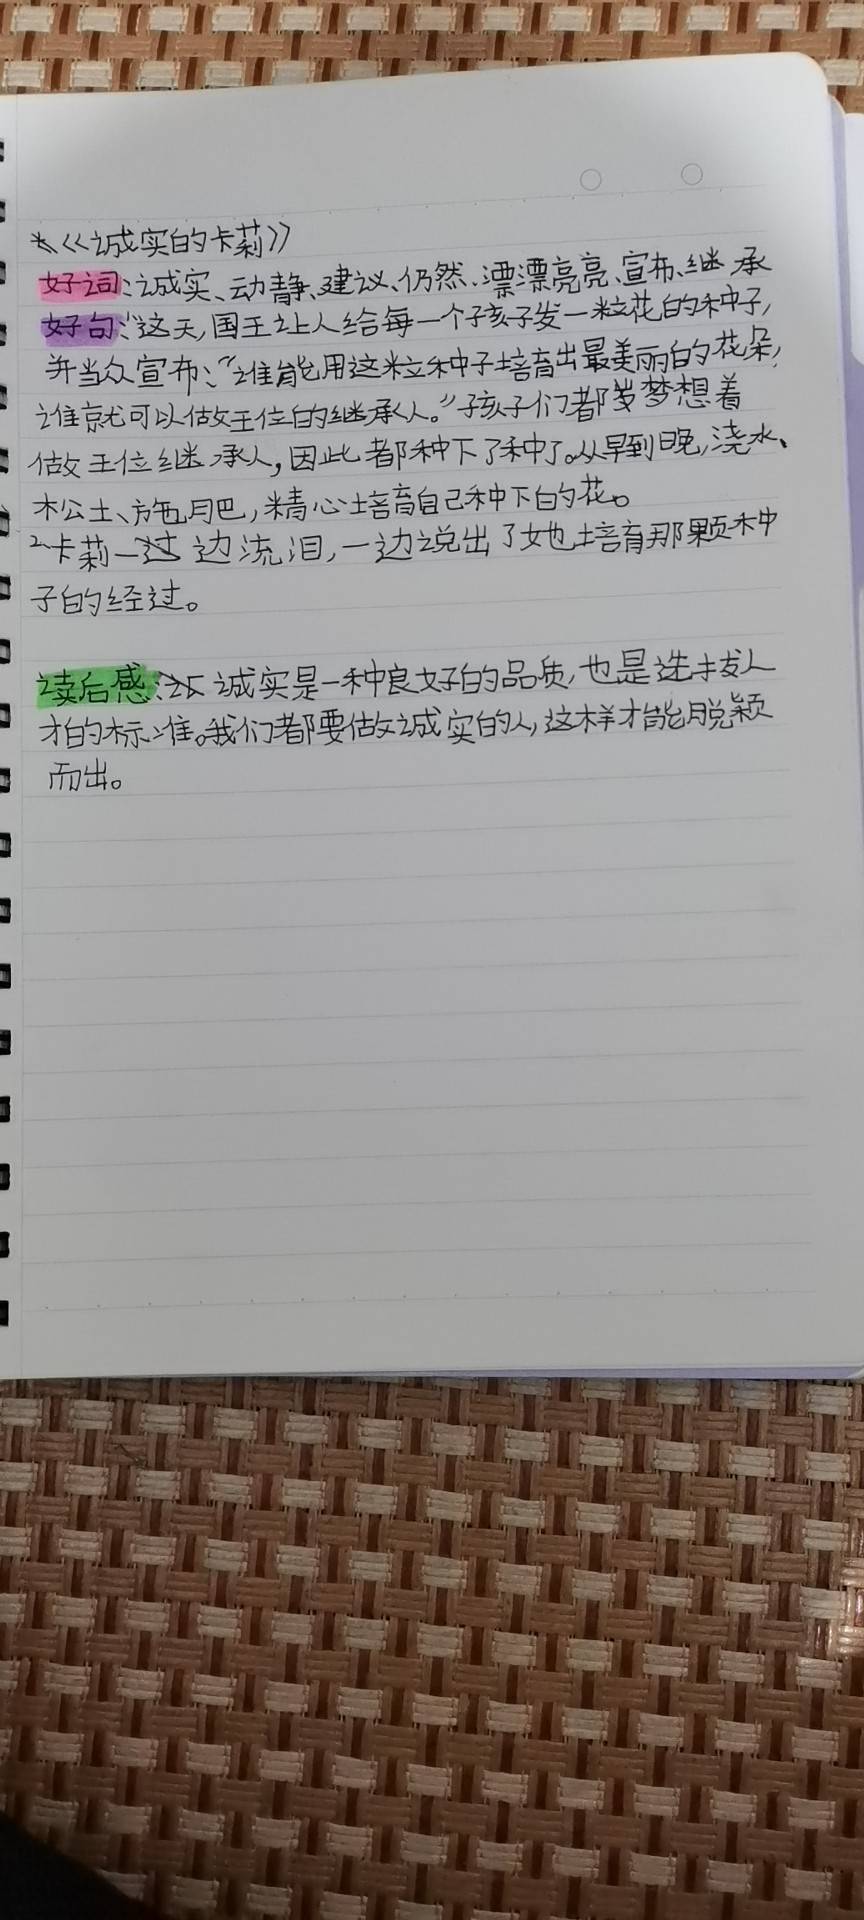 *《诚实的卡莉》
好词:诚实、动静、建议、仍然、漂漂亮亮、宣布、继承
好句:"这天,国王让人给每一个孩子发一粒花的种子,
并当众宣布:"谁能用这粒种子培育出最美丽的花朵,
谁就可以做王位的继承人。"孩子们都梦想着
做王位继承人,因此都种下了种子。从早到晚,浇水、
松土、施肥,精心培育自己种下的花。
2卡莉一边流泪,一边说出了她培育那颗种
子的经过。
读后感:诚实是一种良好的品质,也是选拔人
才的标准。我们都要做诚实的人,这样才能脱颖
而出。